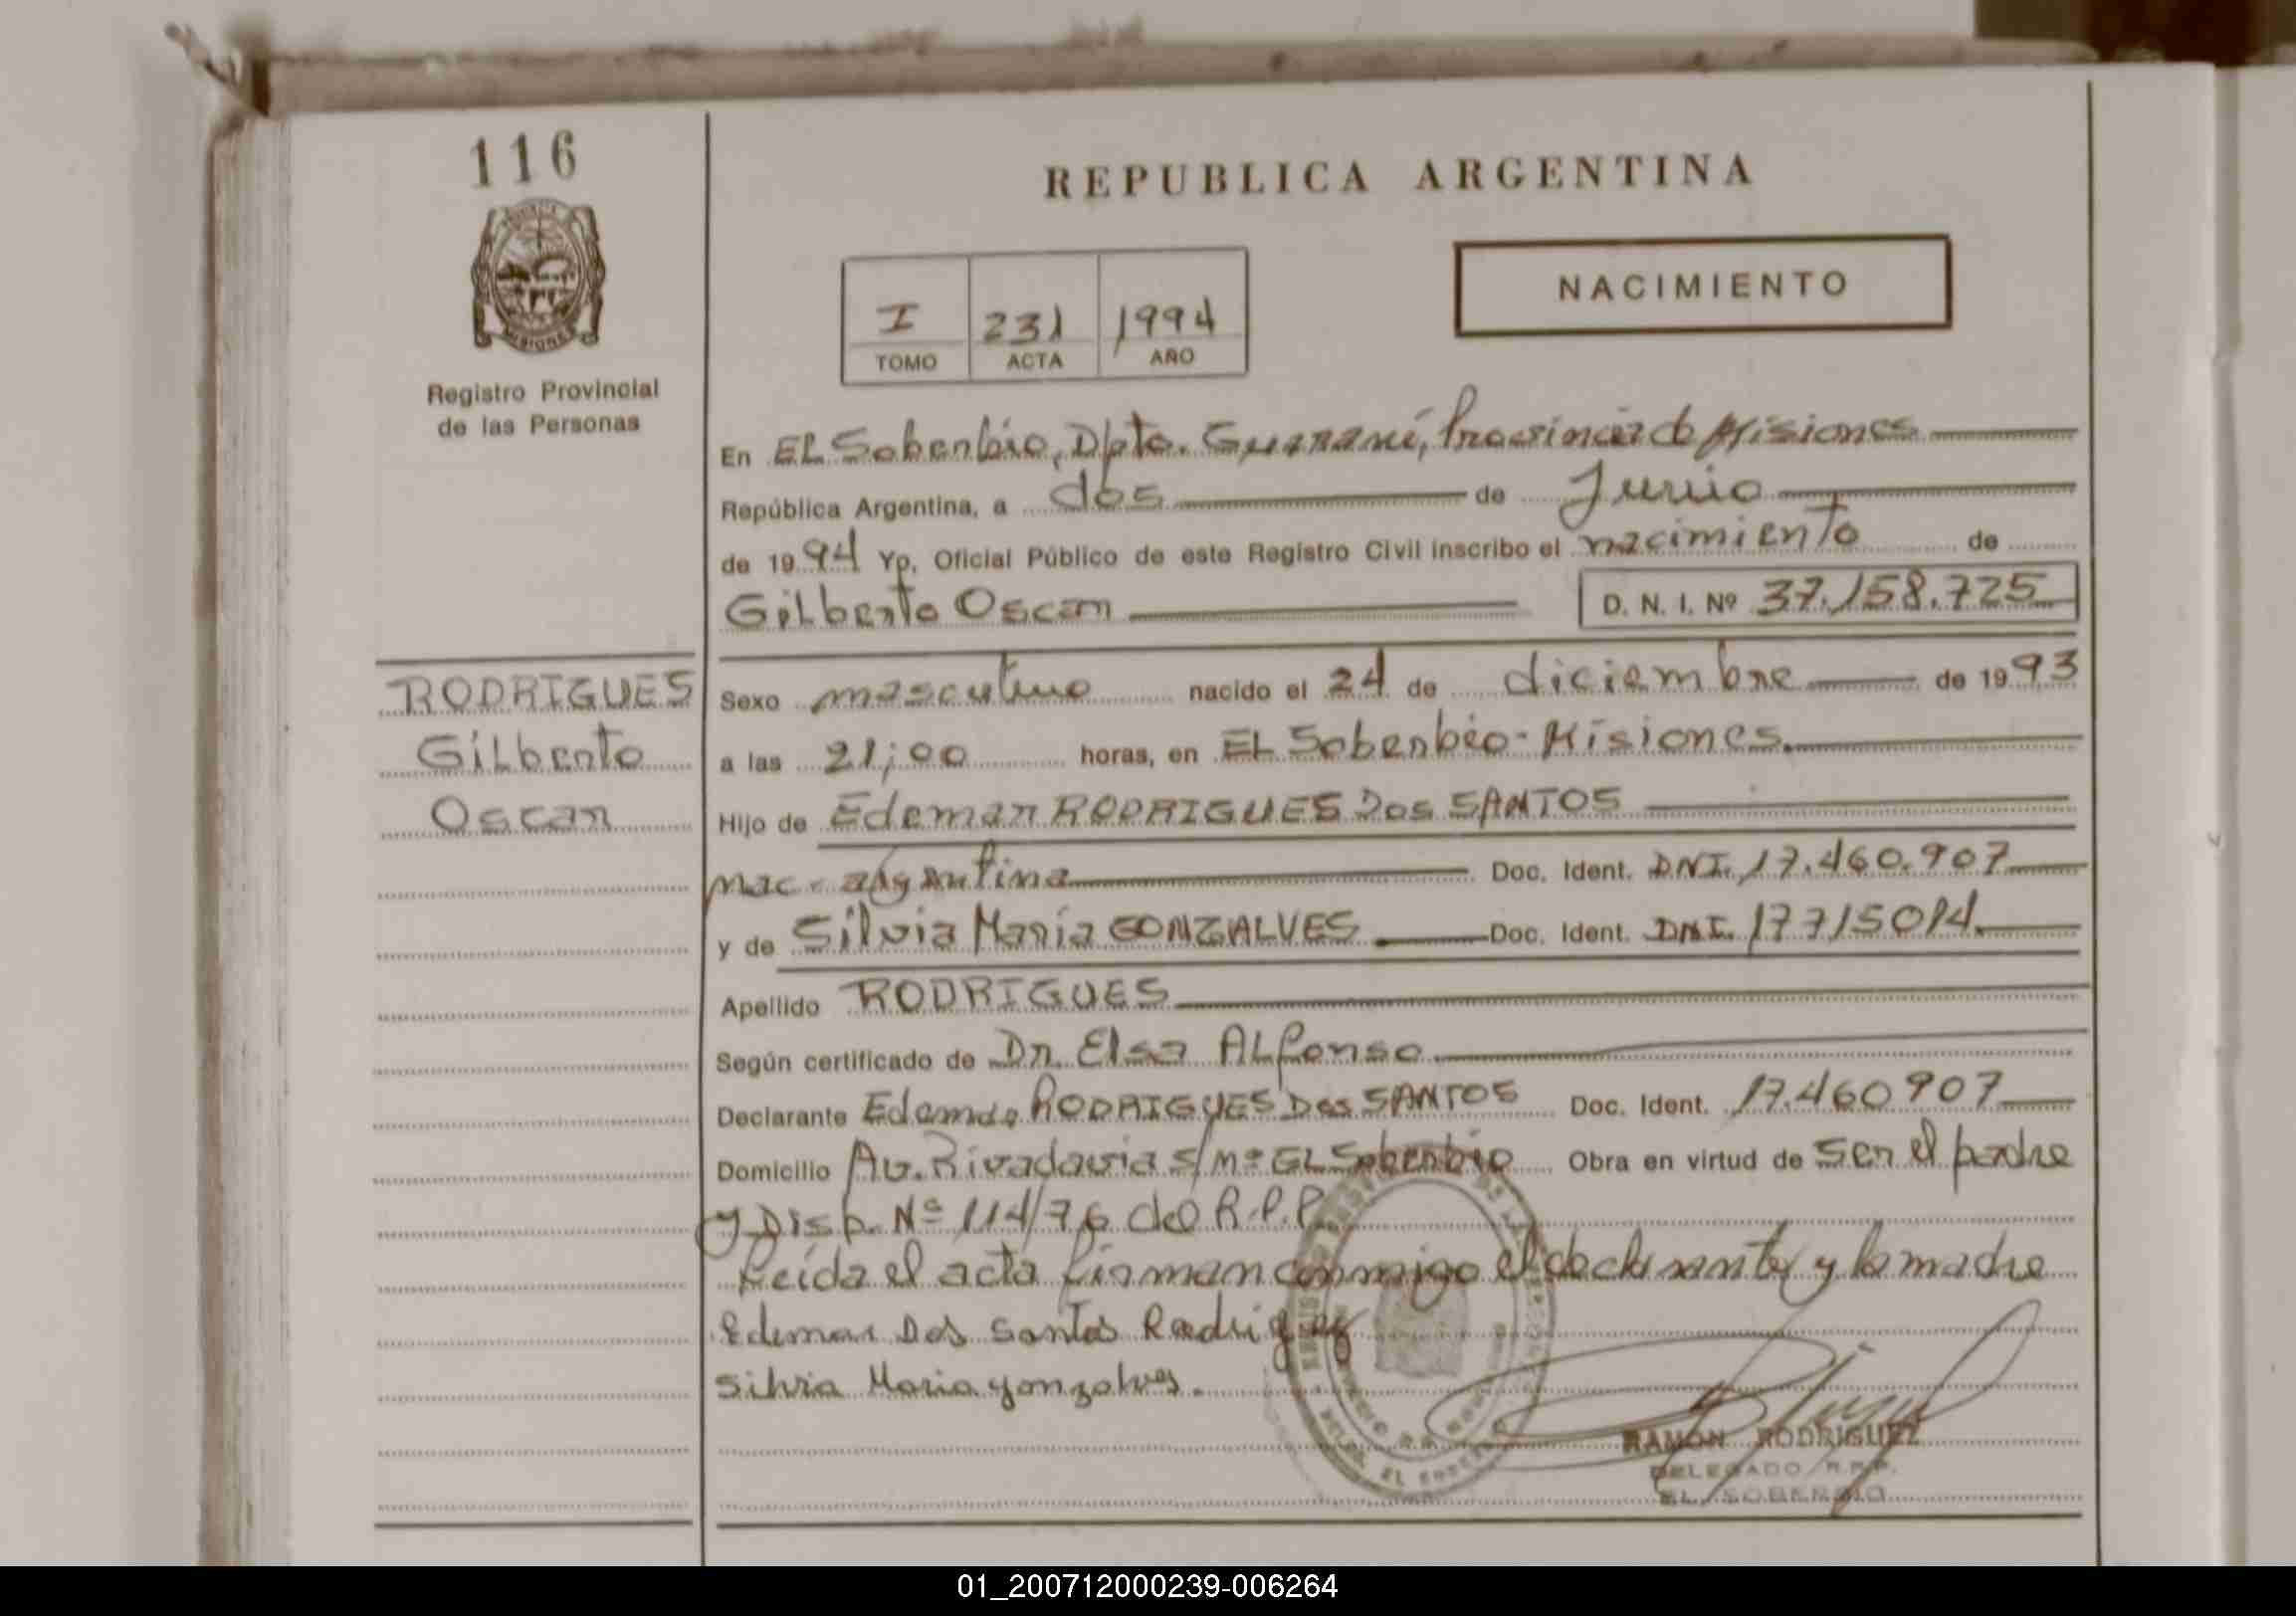 116
REPUBLICA ARGENTINA
NACIMIENTO
I 231 1994
TOMO ACTA AÑO
Registro Provincial
de las Personas
En EL Soberbio, Dpto. Guaraní, Provincia de Misiones
República Argentina, a dos de Junio
de 1994 Yo, Oficial Público de este Registro Civil inscribo el nacimiento de
Gilberto Oscar D. N. I. Nº 37.158.725
RODRIGUES
Gilberto
Oscar
Sexo masculino nacido el 24 de diciembre de 1993
a las 21;00 horas, en EL Soberbio - Misiones.
Hijo de Edemar RODRIGUES Dos SANTOS
nac - argentina Doc. Ident. DNI. 17.460.907
y de Silvia María GONZALVES Doc. Ident. DNI. 17715014.
Apellido RODRIGUES
Según certificado de Dr. Elsa Alfonso
Declarante Edemar RODRIGUES Dos SANTOS Doc. Ident. 17.460907
Domicilio Av. Rivadavia s/nº EL Soberbio Obra en virtud de ser el padre
y Disp. Nº 114/76 del R.P.P.
Leída el acta firman conmigo el declarante y la madre
Edemar Dos Santos Rodriguez
Silvia Maria gonzalves.
RAMON RODRIGUEZ
DELEGADO R.P.P.
EL SOBERBIO
01_200712000239-006264